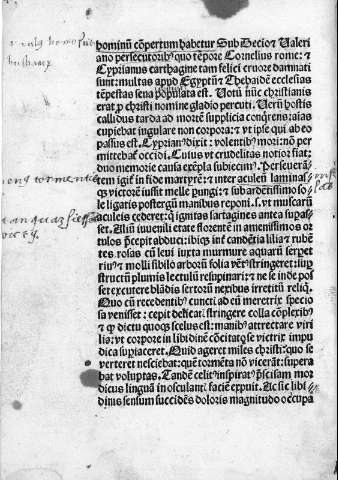 hominũ cõpertum habetur Sub Decio & Valeri
ano persecutoribꝰ quo tẽpore Cornelius rome: &
Cyprianus carthagine tam felici cruore damnati
sunt: multas apud Egyptũ & Thebaidẽ ecclesias
tẽpestas seua populata est. Votũ nũc christianis
erat ꝓ christi nomine gladio percuti. Verũ hostis
callidus tarda ad mortẽ supplicia conqrens: aĩas
cupiebat iugulare non corpora: & vt ipse qui ab eo
passus est. Cyprianꝰ dixit: volentibꝰ mori: nõ per
mittebat᷑ occidi. Cuius vt crudelitas notior fiat:
duo memorie causa exẽpla subiecimꝰ. Perseuerã
tem igit᷑ in fide martyrẽ: & inter aculeũ laminas
qꝫ victorẽ iussit melle ꝑungi: & sub ardẽtissimo so
le ligatis postergũ manibus reponi. s. vt muscarũ
aculeis cederet: q̃ ignitas sartagines antea supas
set. Aliũ iuuenili etate florentẽ in amenissimos or
tulos p̃cepit abduci: ibiqꝫ inf᷑ candẽtia lilia & rubẽ
tes rosas cũ leui iuxta murmure aquarũ serpet
riuꝰ: & molli sibilo arborũ folia vẽtꝰ stringeret: sup
structũ plumis lectulũ resupinari: & ne se inde pos
set excutere blãdis sertorũ nexibus irretitũ reliq̃.
Quo cũ recedentibꝰ cunctis ad eũ meretrix specio
sa venisset: cepit delicat᷑ stringere colla cõplexibꝰ
& qꝫ dictu quoqꝫ scelus est: manibꝰ attrectare viri
lia: vt corpore in libidinẽ cõcitato se victrix impu
dica supiaceret. Quid ageret miles christi: quo se
verteret nesciebat: quẽ tormẽta nõ vicerãt: supera
bat voluptas. Tandẽ celitꝰ inspiratꝰ p̃scisam mor
dicus linguã in osculant᷑ faciẽ expuit. Ac sic libi
dinis sensum succedẽs doloris magnitudo occupa